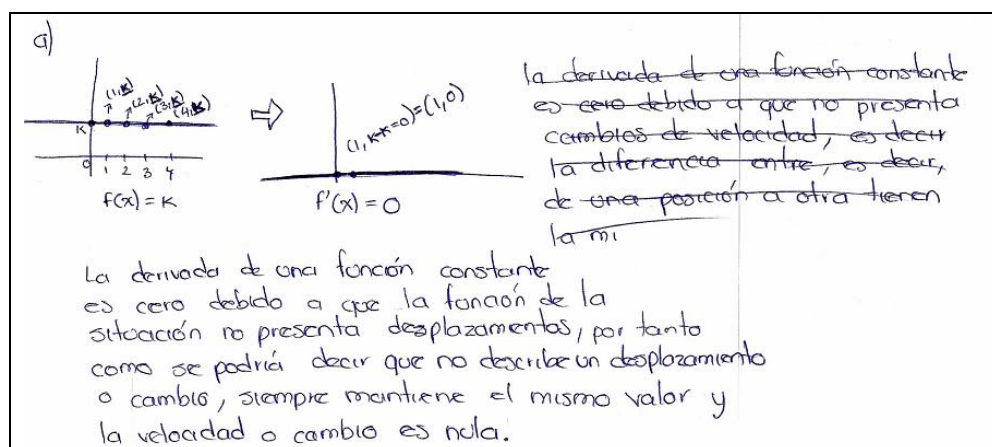 a)
(1,K)
(2,K)
(3,K)
(4,K)
K
0 1 2 3 4
f(x) = K
⇨
(1, K-K=0)=(1,0)
f'(x) = 0
la derivada de una función constante
es cero debido a que no presenta
cambios de velocidad, es decir
la diferencia entre, es decir,
de una posición a otra tienen
la mi
La derivada de una función constante
es cero debido a que la función de la
situación no presenta desplazamientos, por tanto
como se podría decir que no describe un desplazamiento
o cambio, siempre mantiene el mismo valor y
la velocidad o cambio es nula.